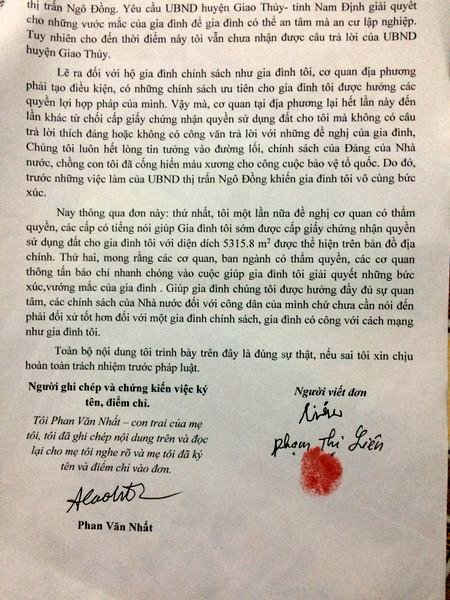 thị trấn Ngô Đồng. Yêu cầu UBND huyện Giao Thủy- tỉnh Nam Định giải quyết
cho những vước mắc của gia đình để gia đình có thể an tâm mà an cư lập nghiệp.
Tuy nhiên cho đến thời điểm này tôi vẫn chưa nhận được câu trả lời của UBND
huyện Giao Thủy.
Lẽ ra đối với hộ gia đình chính sách như gia đình tôi, cơ quan địa phương
phải tạo điều kiện, có những chính sách ưu tiên cho gia đình tôi được hưởng các
quyền lợi hợp pháp của mình. Vậy mà, cơ quan tại địa phương lại hết lần này đến
lần khác từ chối cấp giấy chứng nhận quyền sử dụng đất cho tôi mà không có câu
trả lời thích đáng hoặc không có công văn trả lời với những đề nghị của gia đình,
Chúng tôi luôn hết lòng tin tưởng vào đường lối, chính sách của Đảng của Nhà
nước, chồng con tôi đã cống hiến máu xương cho công cuộc bảo vệ tổ quốc. Do đó,
trước những việc làm của UBND thị trấn Ngô Đồng khiến gia đình tôi vô cùng bức
xúc.
Nay thông qua đơn này: thứ nhất, tôi một lần nữa đề nghị cơ quan có thẩm
quyền, các cấp có tiếng nói giúp Gia đình tôi sớm được cấp giấy chứng nhận quyền
sử dụng đất cho gia đình tôi với diện dích 5315.8 m² được thể hiện trên bản đồ địa
chính. Thứ hai, mong rằng các cơ quan, ban ngành có thẩm quyền, các cơ quan
thông tấn báo chí nhanh chóng vào cuộc giúp gia đình tôi giải quyết những bức
xúc,vướng mắc của gia đình . Giúp gia đình chúng tôi được hưởng đầy đủ sự quan
tâm, các chính sách của Nhà nước đối với công dân của mình chứ chưa cần nói đến
phải đối xử tốt hơn đối với một gia đình chính sách, gia đình có công với cách mạng
như gia đình tôi.
Toàn bộ nội dung tôi trình bày trên đây là đúng sự thật, nếu sai tôi xin chịu
hoàn toàn trách nhiệm trước pháp luật.
Người ghi chép và chứng kiến việc ký
tên, điểm chỉ.
Tôi Phan Văn Nhất – con trai của mẹ
tôi, tôi đã ghi chép nội dung trên và đọc
lại cho mẹ tôi nghe rõ và mẹ tôi đã ký
tên và điểm chỉ vào đơn.
Phan Văn Nhất
Người viết đơn
Phạm Thị Liến